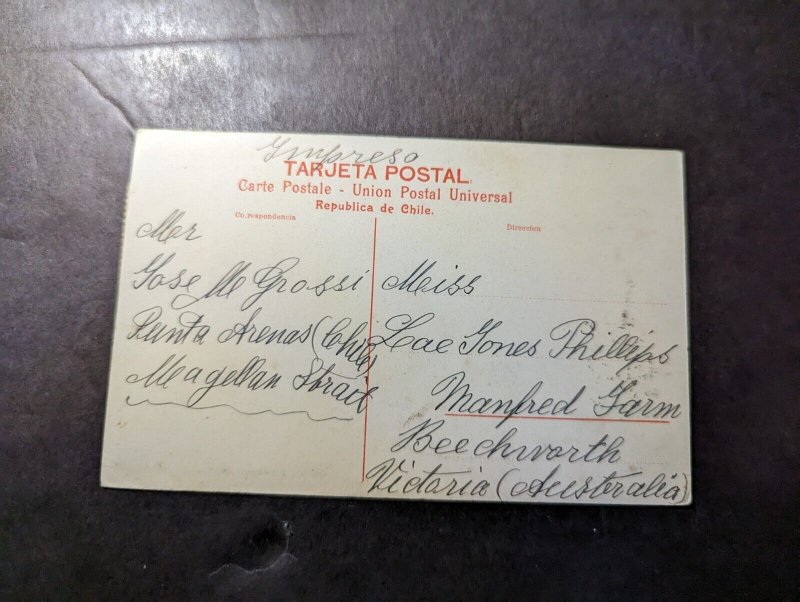 Impreso
TARJETA POSTAL
Carte Postale - Union Postal Universal
Republica de Chile.
Co.respondencia
Direccion
Mr
Jose M Grossi
Punta Arenas (Chile)
Magellan Strait
Miss
Lae Jones Phillips
Manfred Farm
Beechworth
Victoria (Australia)